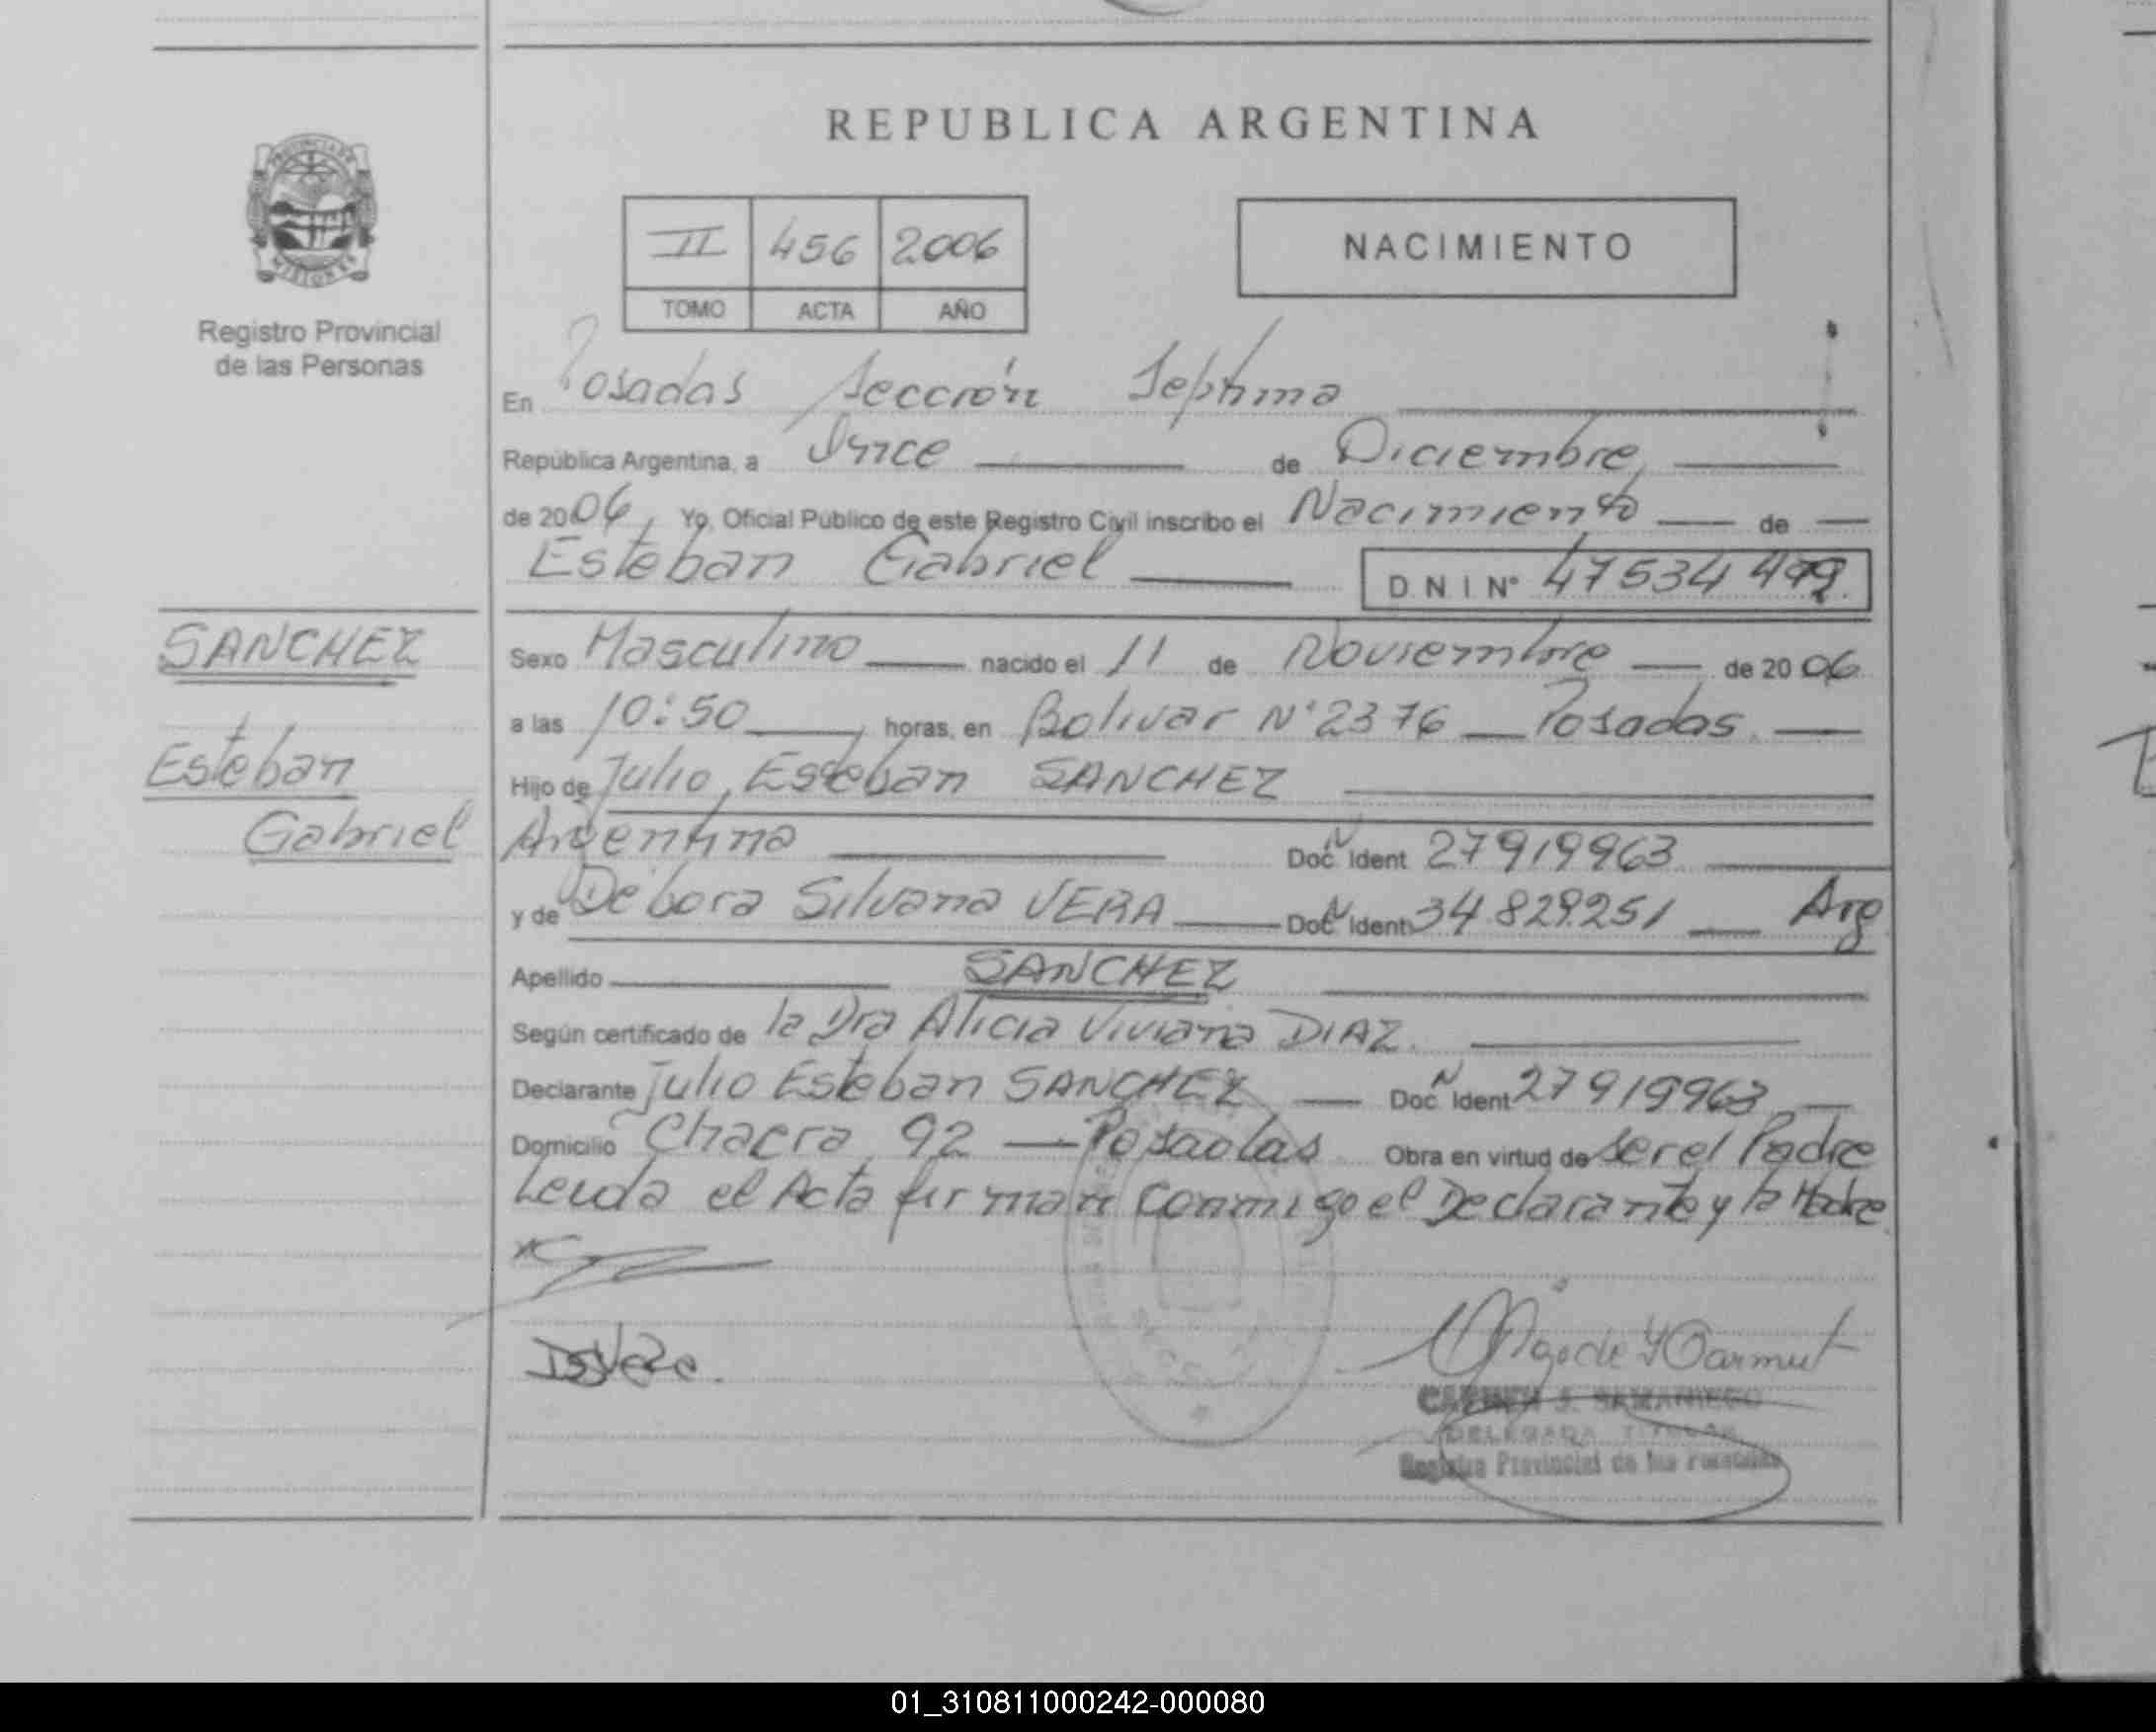 REPUBLICA ARGENTINA
PROVINCIA DE
MISIONES
Registro Provincial
de las Personas
II 456 2006
TOMO ACTA AÑO
NACIMIENTO
En Posadas Sección Septima
República Argentina, a Once de Diciembre
de 2006, Yo, Oficial Público de este Registro Civil inscribo el Nacimiento de
Esteban Gabriel D N I Nº 47534499.
SANCHEZ
Esteban
Gabriel
Sexo Masculino nacido el 11 de Noviembre de 2006
a las 10:50, horas, en Bolivar Nº 2376 Posadas.
Hijo de Julio Esteban SANCHEZ
Argentina Doc N Ident 27919963
y de Debora Silvana VERA Doc N Ident 34829251 Arg
Apellido SANCHEZ
Según certificado de la Dra Alicia Viviana DIAZ.
Declarante Julio Esteban SANCHEZ Doc N Ident 27919963
Domicilio Chacra 92 Posadas Obra en virtud de ser el Padre
Leida el Acta firman conmigo el Declarante y la Madre
CARMEN S. SAMANIEGO
DELEGADA TITULAR
Registro Provincial de las Personas
01_310811000242-000080